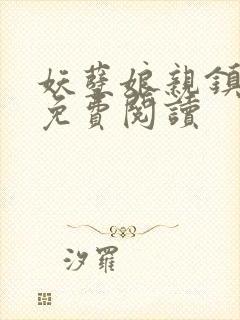 妖孽娘親鎮
免費閱讀
汐羅